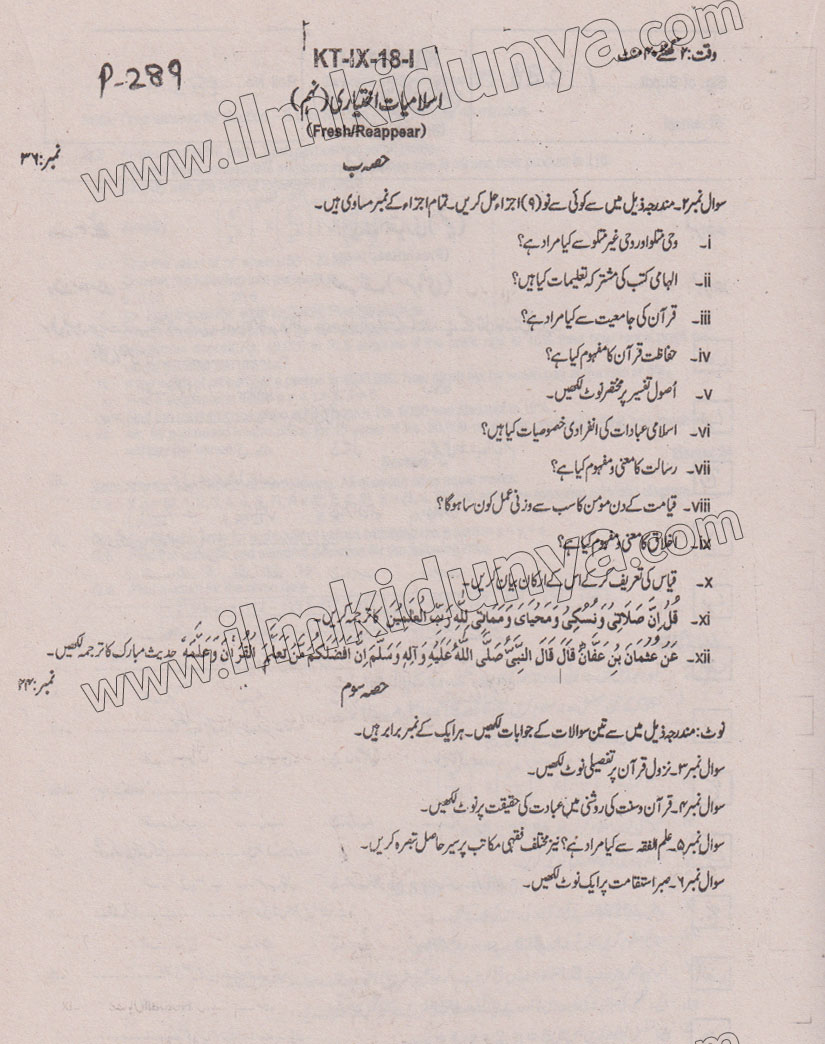 وقت: ۲ گھنٹے ۴۰ منٹ
KT-IX-18-I
P-289
اسلامیات اختیاری (نہم)
(Fresh/Reappear)
حصہ ب
نمبر: ۳۶
سوال نمبر ۲۔ مندرجہ ذیل میں سے کوئی سے نو (۹) اجزاء حل کریں۔ تمام اجزاء کے نمبر مساوی ہیں۔
i۔ وحی متلو اور وحی غیر متلو سے کیا مراد ہے؟
ii۔ الہامی کتب کی مشترکہ تعلیمات کیا ہیں؟
iii۔ قرآن کی جامعیت سے کیا مراد ہے؟
iv۔ حفاظت قرآن کا مفہوم کیا ہے؟
v۔ اُصول تفسیر پر مختصر نوٹ لکھیں۔
vi۔ اسلامی عبادات کی انفرادی خصوصیات کیا ہیں؟
vii۔ رسالت کا معنی و مفہوم کیا ہے؟
viii۔ قیامت کے دن مومن کا سب سے وزنی عمل کون سا ہوگا؟
ix۔ اخلاق کا معنی و مفہوم کیا ہے؟
x۔ قیاس کی تعریف کر کے اس کے ارکان بیان کریں۔
xi۔ قُلْ اِنَّ صَلَاتِیْ وَنُسُکِیْ وَمَحْیَایَ وَمَمَاتِیْ لِلّٰہِ رَبِّ الْعٰلَمِیْنَ کا ترجمہ کریں۔
xii۔ عَنْ عُثْمَانَ بْنِ عَفَّانَ قَالَ قَالَ النَّبِیُّ صَلَّی اللّٰہُ عَلَیْہِ وَآلِہٖ وَسَلَّمَ اِنَّ اَفْضَلَکُمْ مَنْ تَعَلَّمَ الْقُرْاٰنَ وَعَلَّمَہٗ حدیث مبارک کا ترجمہ لکھیں۔
حصہ سوم
نمبر: ۲۴
نوٹ: مندرجہ ذیل میں سے تین سوالات کے جوابات لکھیں۔ ہر ایک کے نمبر برابر ہیں۔
سوال نمبر ۳۔ نزول قرآن پر تفصیلی نوٹ لکھیں۔
سوال نمبر ۴۔ قرآن وسنت کی روشنی میں عبادت کی حقیقت پر نوٹ لکھیں۔
سوال نمبر ۵۔ علم الفقہ سے کیا مراد ہے؟ نیز مختلف فقہی مکاتب پر سیر حاصل تبصرہ کریں۔
سوال نمبر ۶۔ صبر استقامت پر ایک نوٹ لکھیں۔
www.ilmkidunya.com
www.ilmkidunya.com